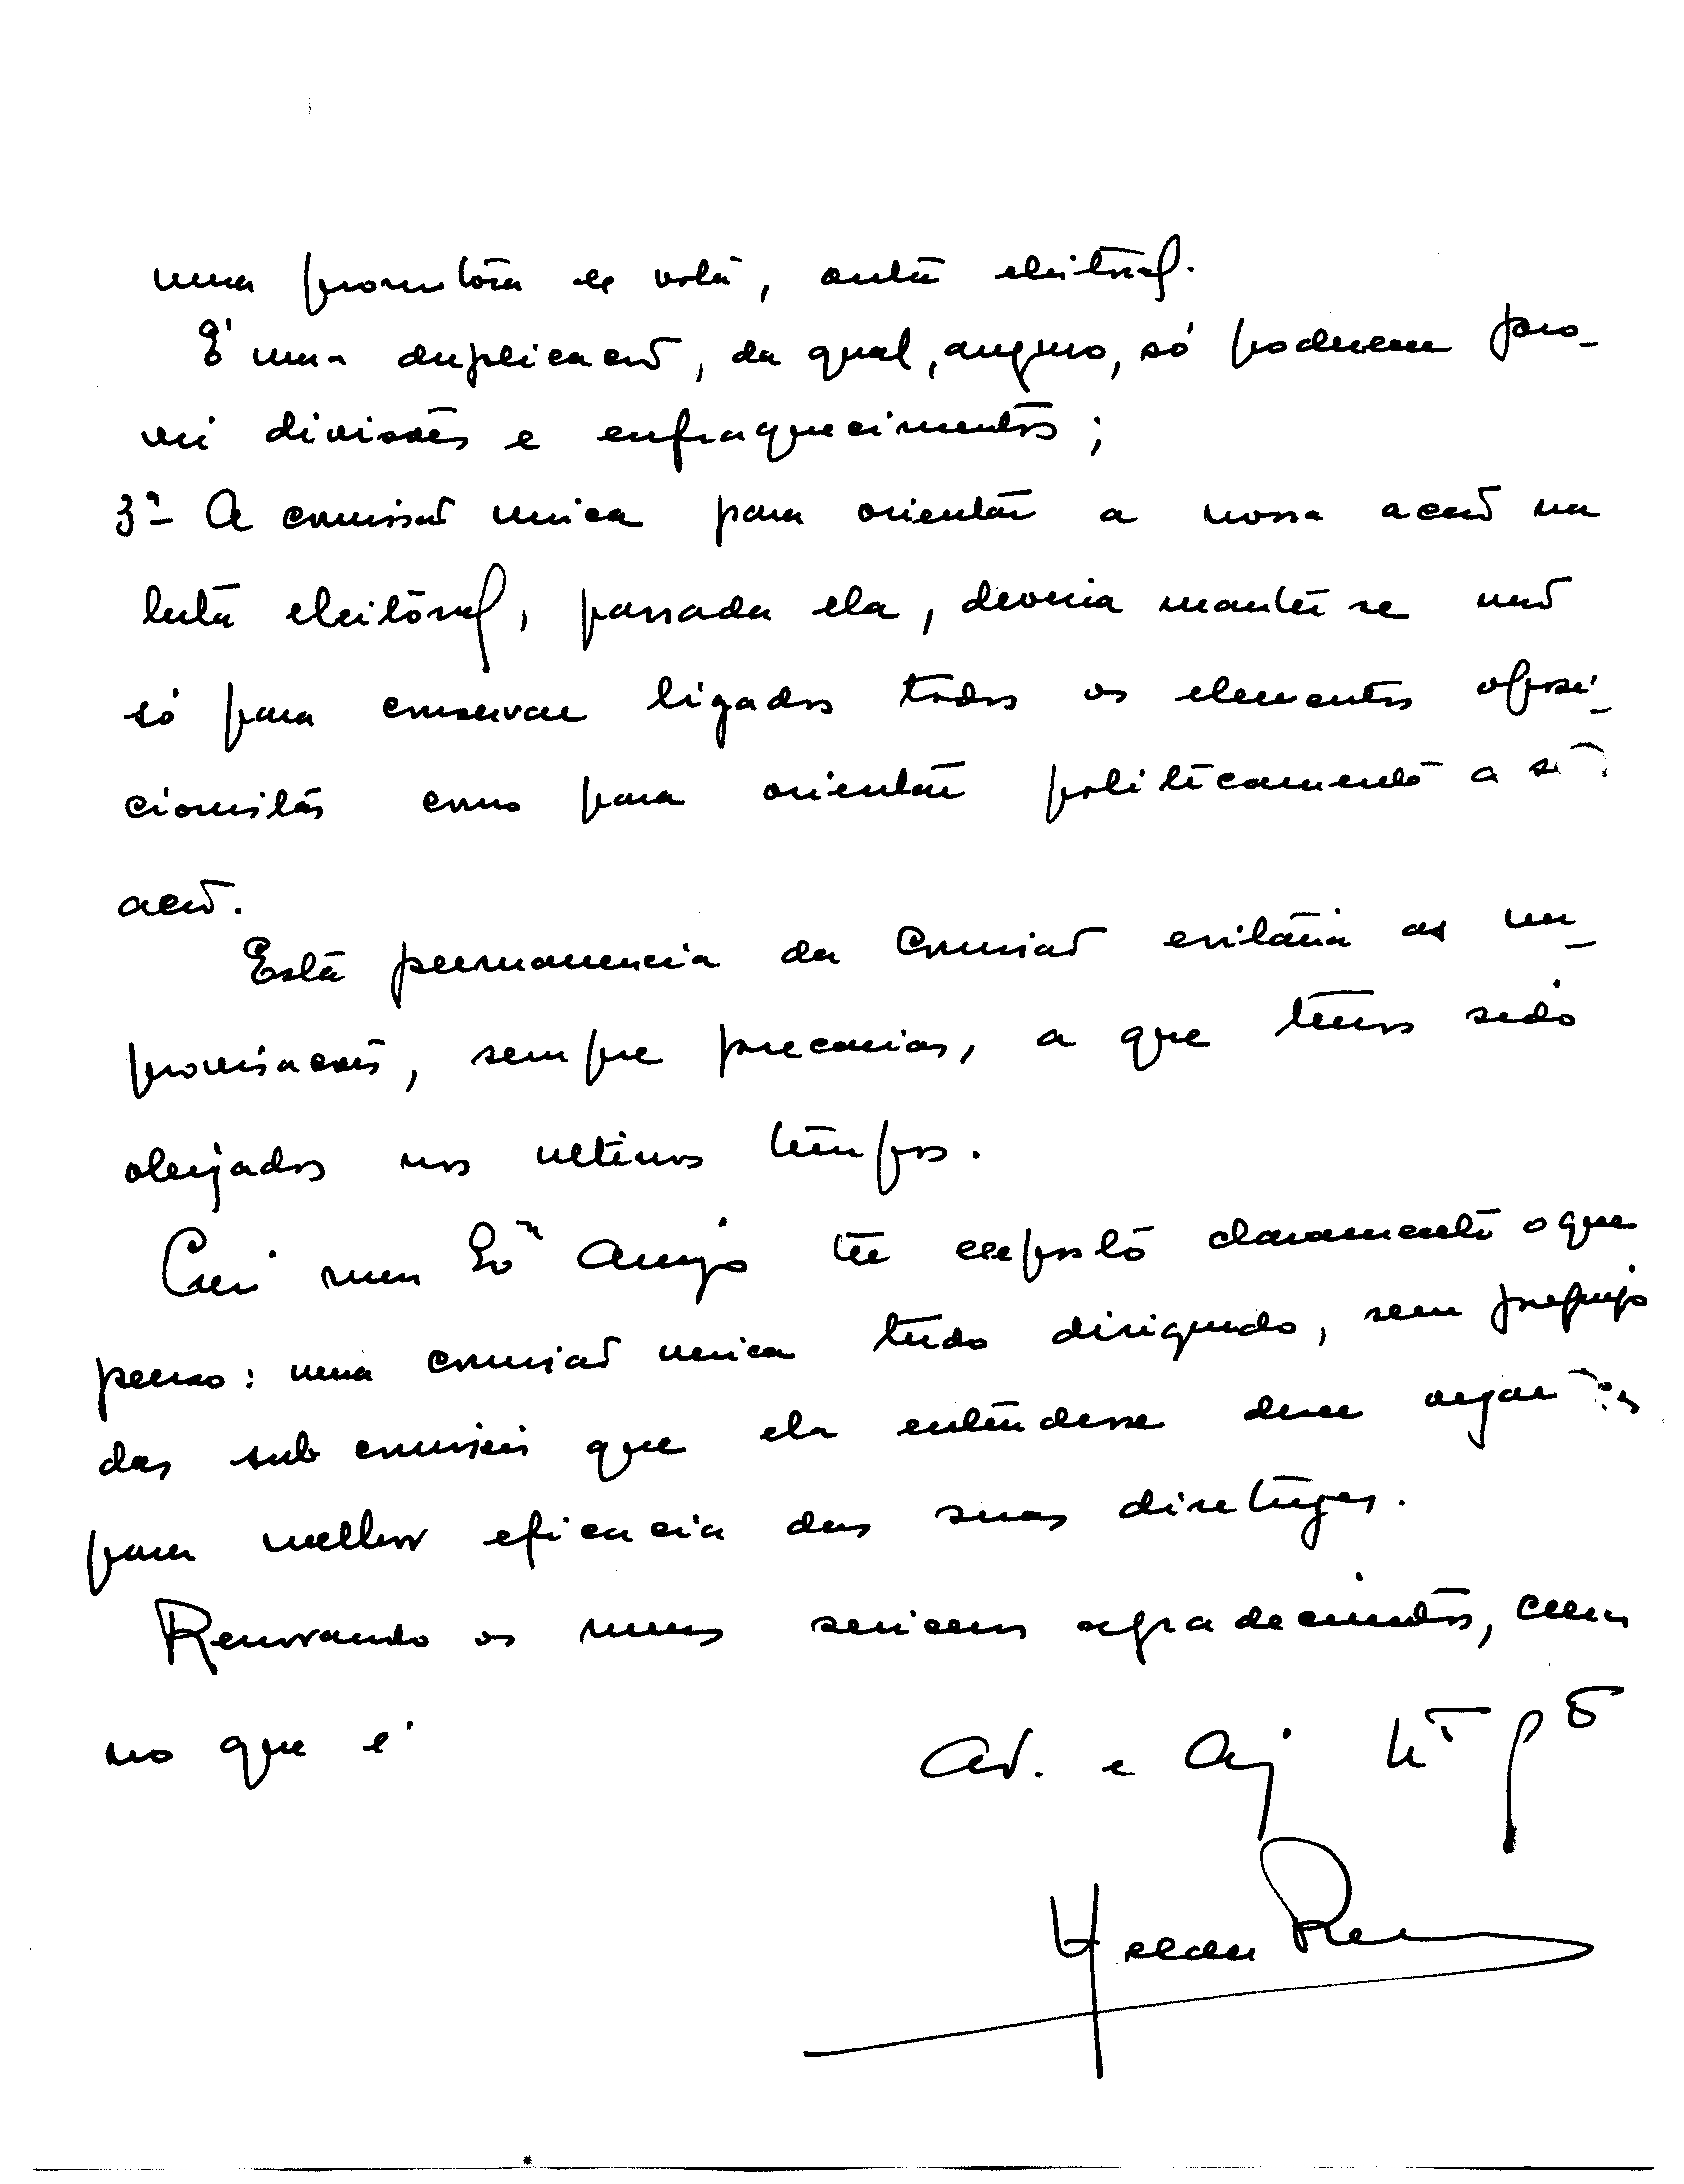 uma promotora de volta, outra eleitoral.
É uma duplicação, da qual, auguro, só poderem pro-
vir divisões e enfraquecimentos;
3º- A comissão unica para orientar a nossa acção na
luta eleitoral, passada ela, deveria manter se não
só para conservar ligados todos os elementos oposi-
cionistas como para orientar politicamente a sua
acção.
Esta permanencia da Comissão evitaria as im-
provisações, sempre precarias, a que temos sido
obrigados nos ultimos tempos.
Creio meu Exº Amigo ter exposto claramente o que
penso: uma comissão unica tudo dirigindo, sem prejuizo
das sub comissões que ela entendesse dever organizar
para melhor eficacia das suas diretrizes.
Renovando os meus sinceros agradecimentos, creia
no que é
Ad. e Am